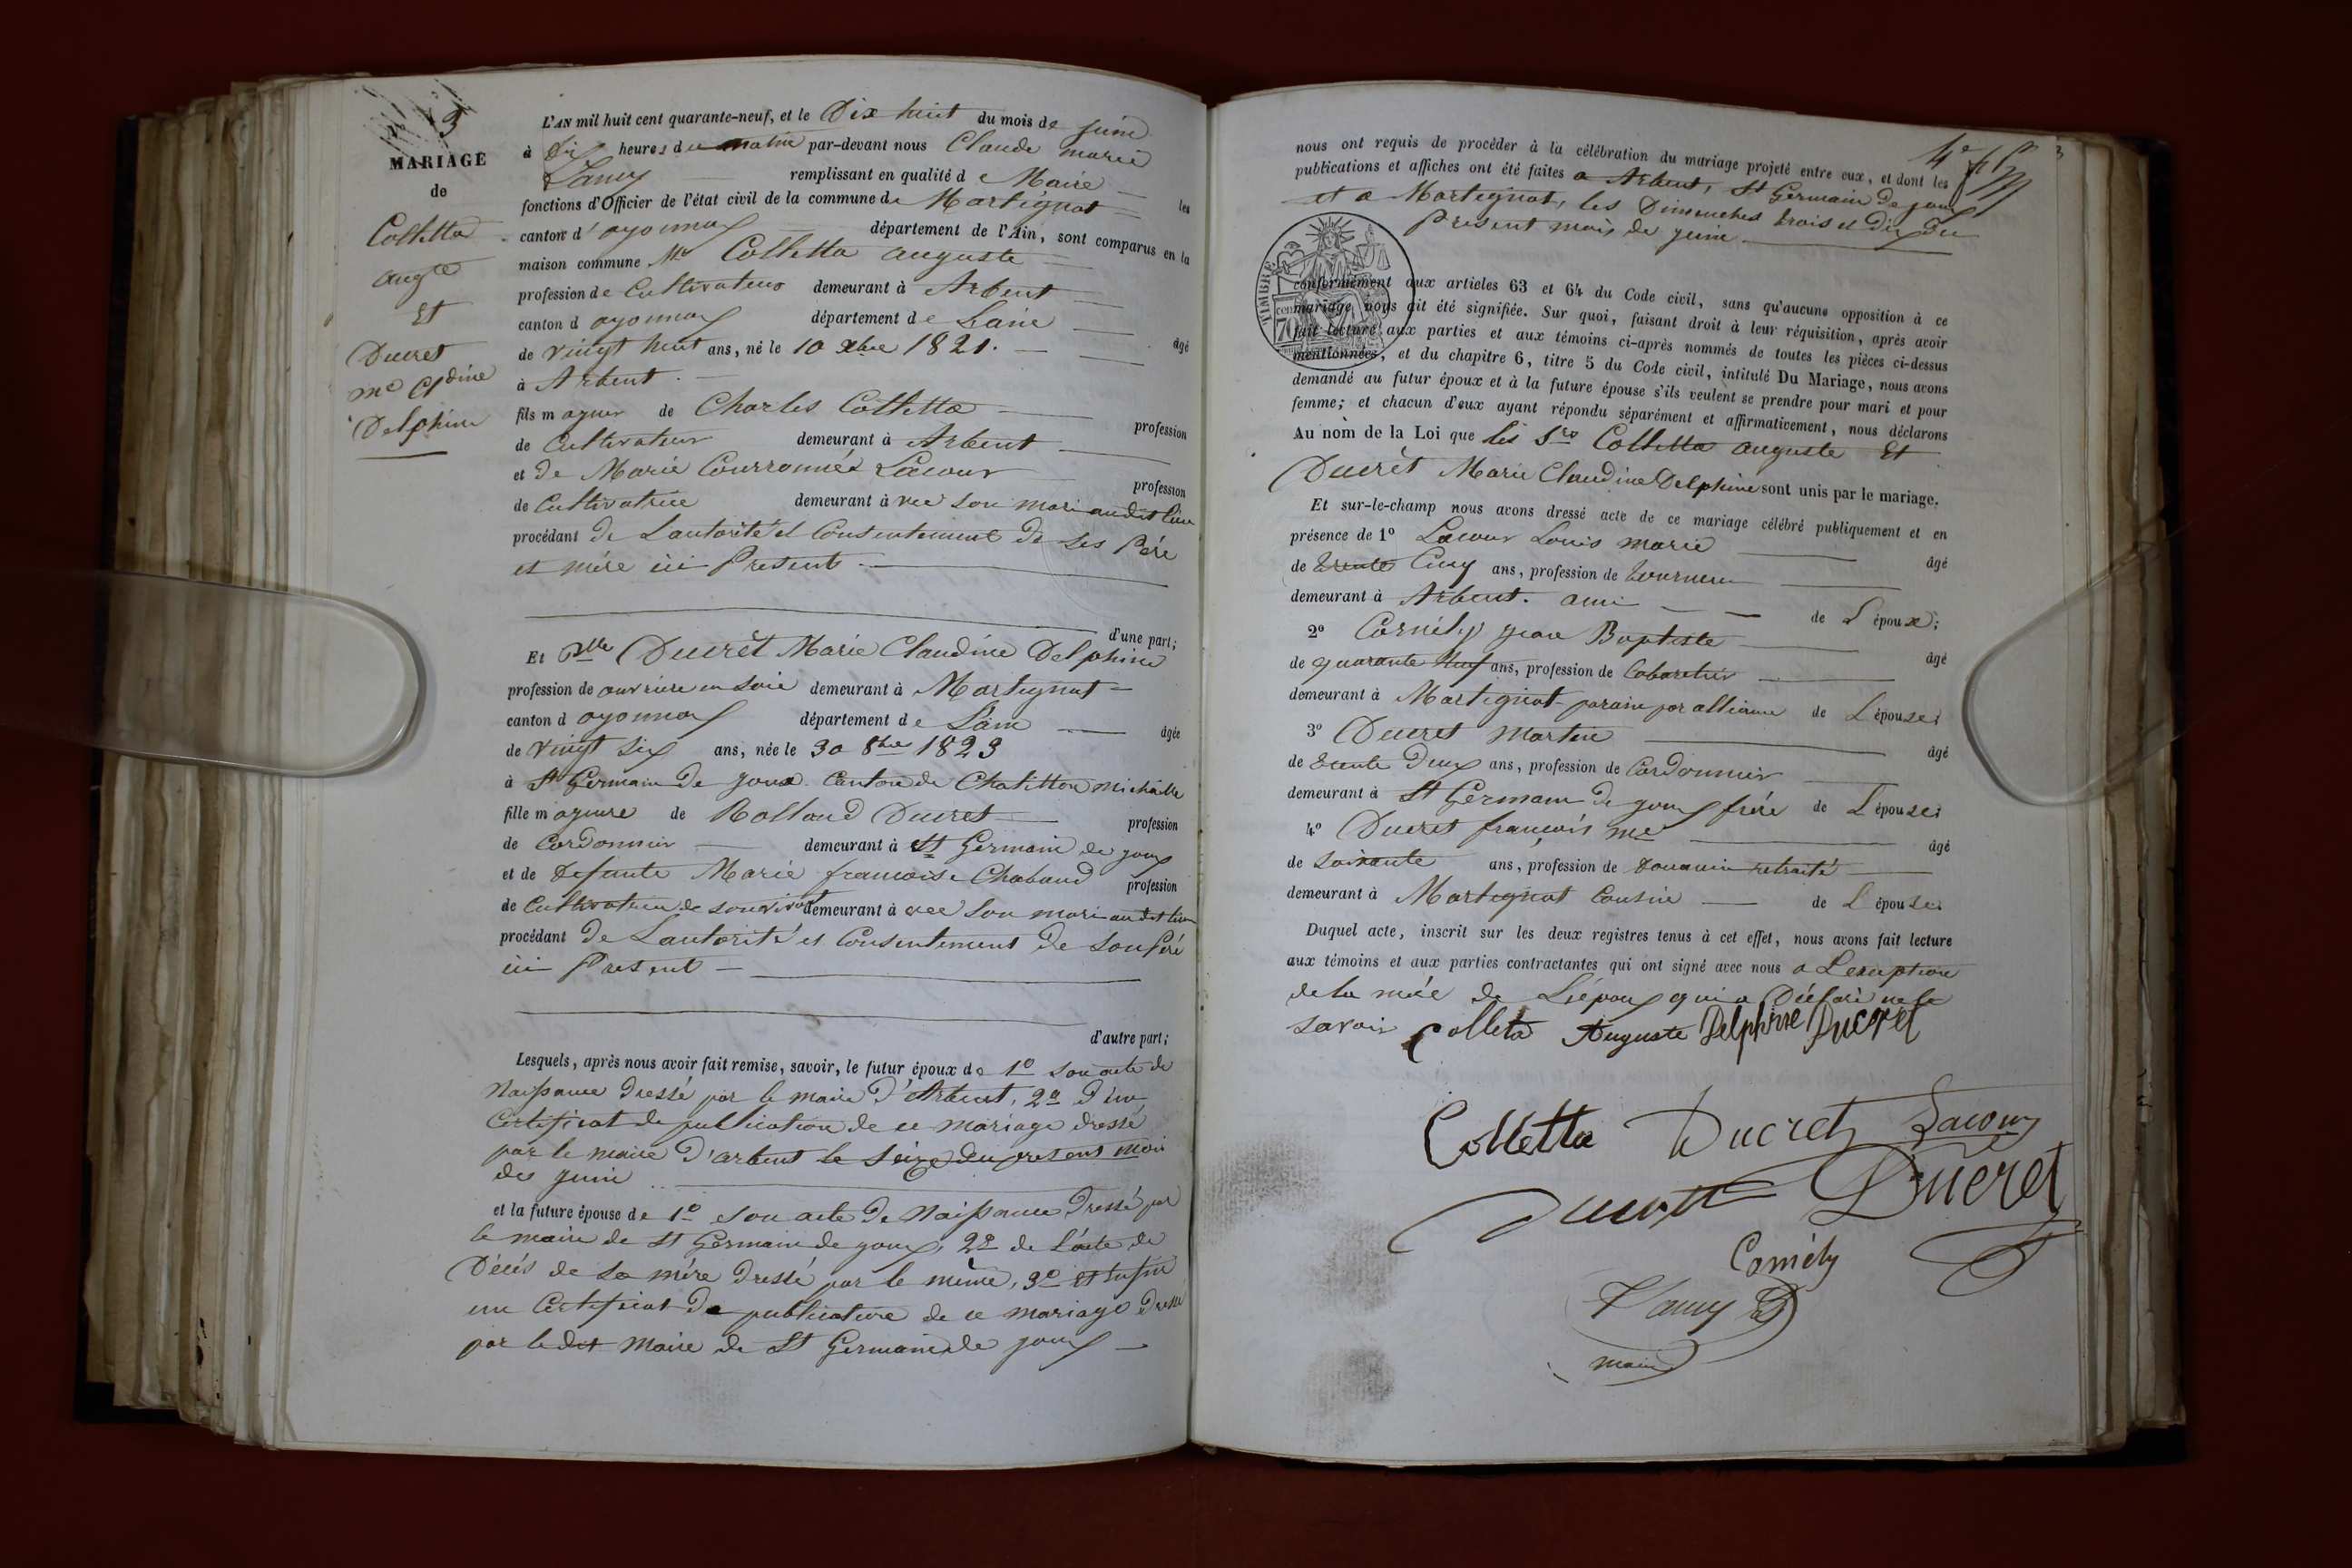 3
MARIAGE
de
Colletta
Augte
Et
Ducret
me Cldine
Delphine
L'AN mil huit cent quarante-neuf, et le Dix huit du mois de juin
à Dix heures du matin par-devant nous Claude marie
Vaney remplissant en qualité de Maire les
fonctions d'Officier de l'état civil de la commune de Martignat
canton d'oyonnax département de l'Ain, sont comparus en la
maison commune Mr Colletta auguste
profession de Cultivateur demeurant à Arbent
canton d oyonnax département de Lain âgé
de vingt huit ans, né le 10 xbre 1821.
à Arbent.
fils mageur de Charles Colletta profession
de Cultivateur demeurant à Arbent
et de Marie Courronnée Lacour profession
de Cultivatrice demeurant àvec son mari audit lieu
procédant de Lautorité et Consentement de ses Père
et mère ici Present
d'une part;
Et Dlle Ducrèt Marie Claudine Delphine
profession de ouvriere en soie demeurant à Martignat
canton d oyonnax département de Lain âgée
de vingt six ans, née le 30 8bre 1823
à St Germain de joux Canton de Chatillon michaille
fille mageure de Rolland Ducret profession
de Cordonnier demeurant à St Germain de joux
et de defunte Marie francoise Chaband profession
de Cultivateur de son vivant demeurant àvec son mari audit lieu
procédant de Lautorité et Consentement de son Père
ici Present
d'autre part;
Lesquels, après nous avoir fait remise, savoir, le futur époux de 1o son acte de
Naissance dressé par le maire D'Arbent, 2o d'un
Certificat de publication de ce mariage dressé
par le maire D'arbent le seize du present mois
de juin
et la future épouse de 1o son acte de Naissance dressé par
le maire de St Germain de joux, 2o de l'acte de
Décés de sa mère dressé par le même, 3o et enfin
un Certificat de publication de ce mariage dressé
par ledit maire de St Germain de joux
4e
nous ont requis de procéder à la célébration du mariage projeté entre eux, et dont les
publications et affiches ont été faites a Arbent, St Germain de joux
et a Martignat, les Dimenches trois et Dix du
Present mois de juin
TIMBRE
70
conformément aux articles 63 et 64 du Code civil, sans qu'aucune opposition à ce
mariage nous ait été signifiée. Sur quoi, faisant droit à leur réquisition, après avoir
fait lecture aux parties et aux témoins ci-après nommés de toutes les pièces ci-dessus
mentionnées, et du chapitre 6, titre 5 du Code civil, intitulé Du Mariage, nous avons
demandé au futur époux et à la future épouse s'ils veulent se prendre pour mari et pour
femme; et chacun d'eux ayant répondu séparément et affirmativement, nous déclarons
Au nom de la Loi que les Srs Colletta auguste Et
Ducrèt Marie Claudine Delphine sont unis par le mariage.
Et sur-le-champ nous avons dressé acte de ce mariage célébré publiquement et en
présence de 1o Lacour Louis marie âgé
de trente Cinq ans, profession de tourneur
demeurant à Arbent. ami de L'époux;
2o Cornély jean Baptiste âgé
de quarante Neuf ans, profession de Cabaretier
demeurant à Martignat parain par alliance de L'épouse;
3o Ducret Martin âgé
de trente Deux ans, profession de Cordonnier
demeurant à St Germain de joux frére de L'épouse;
4o Ducret françois me âgé
de soixante ans, profession de Douanier retraité
demeurant à Martignat Cousin de L'épouse.
Duquel acte, inscrit sur les deux registres tenus à cet effet, nous avons fait lecture
aux témoins et aux parties contractantes qui ont signé avec nous a Lexeption
de la mère de L'époux qui a Déclaré ne le
savoir Colleta Auguste Delphine Ducret
Colletta Ducret Lacour
Ducret Ducret
Cornély
Vaney
maire